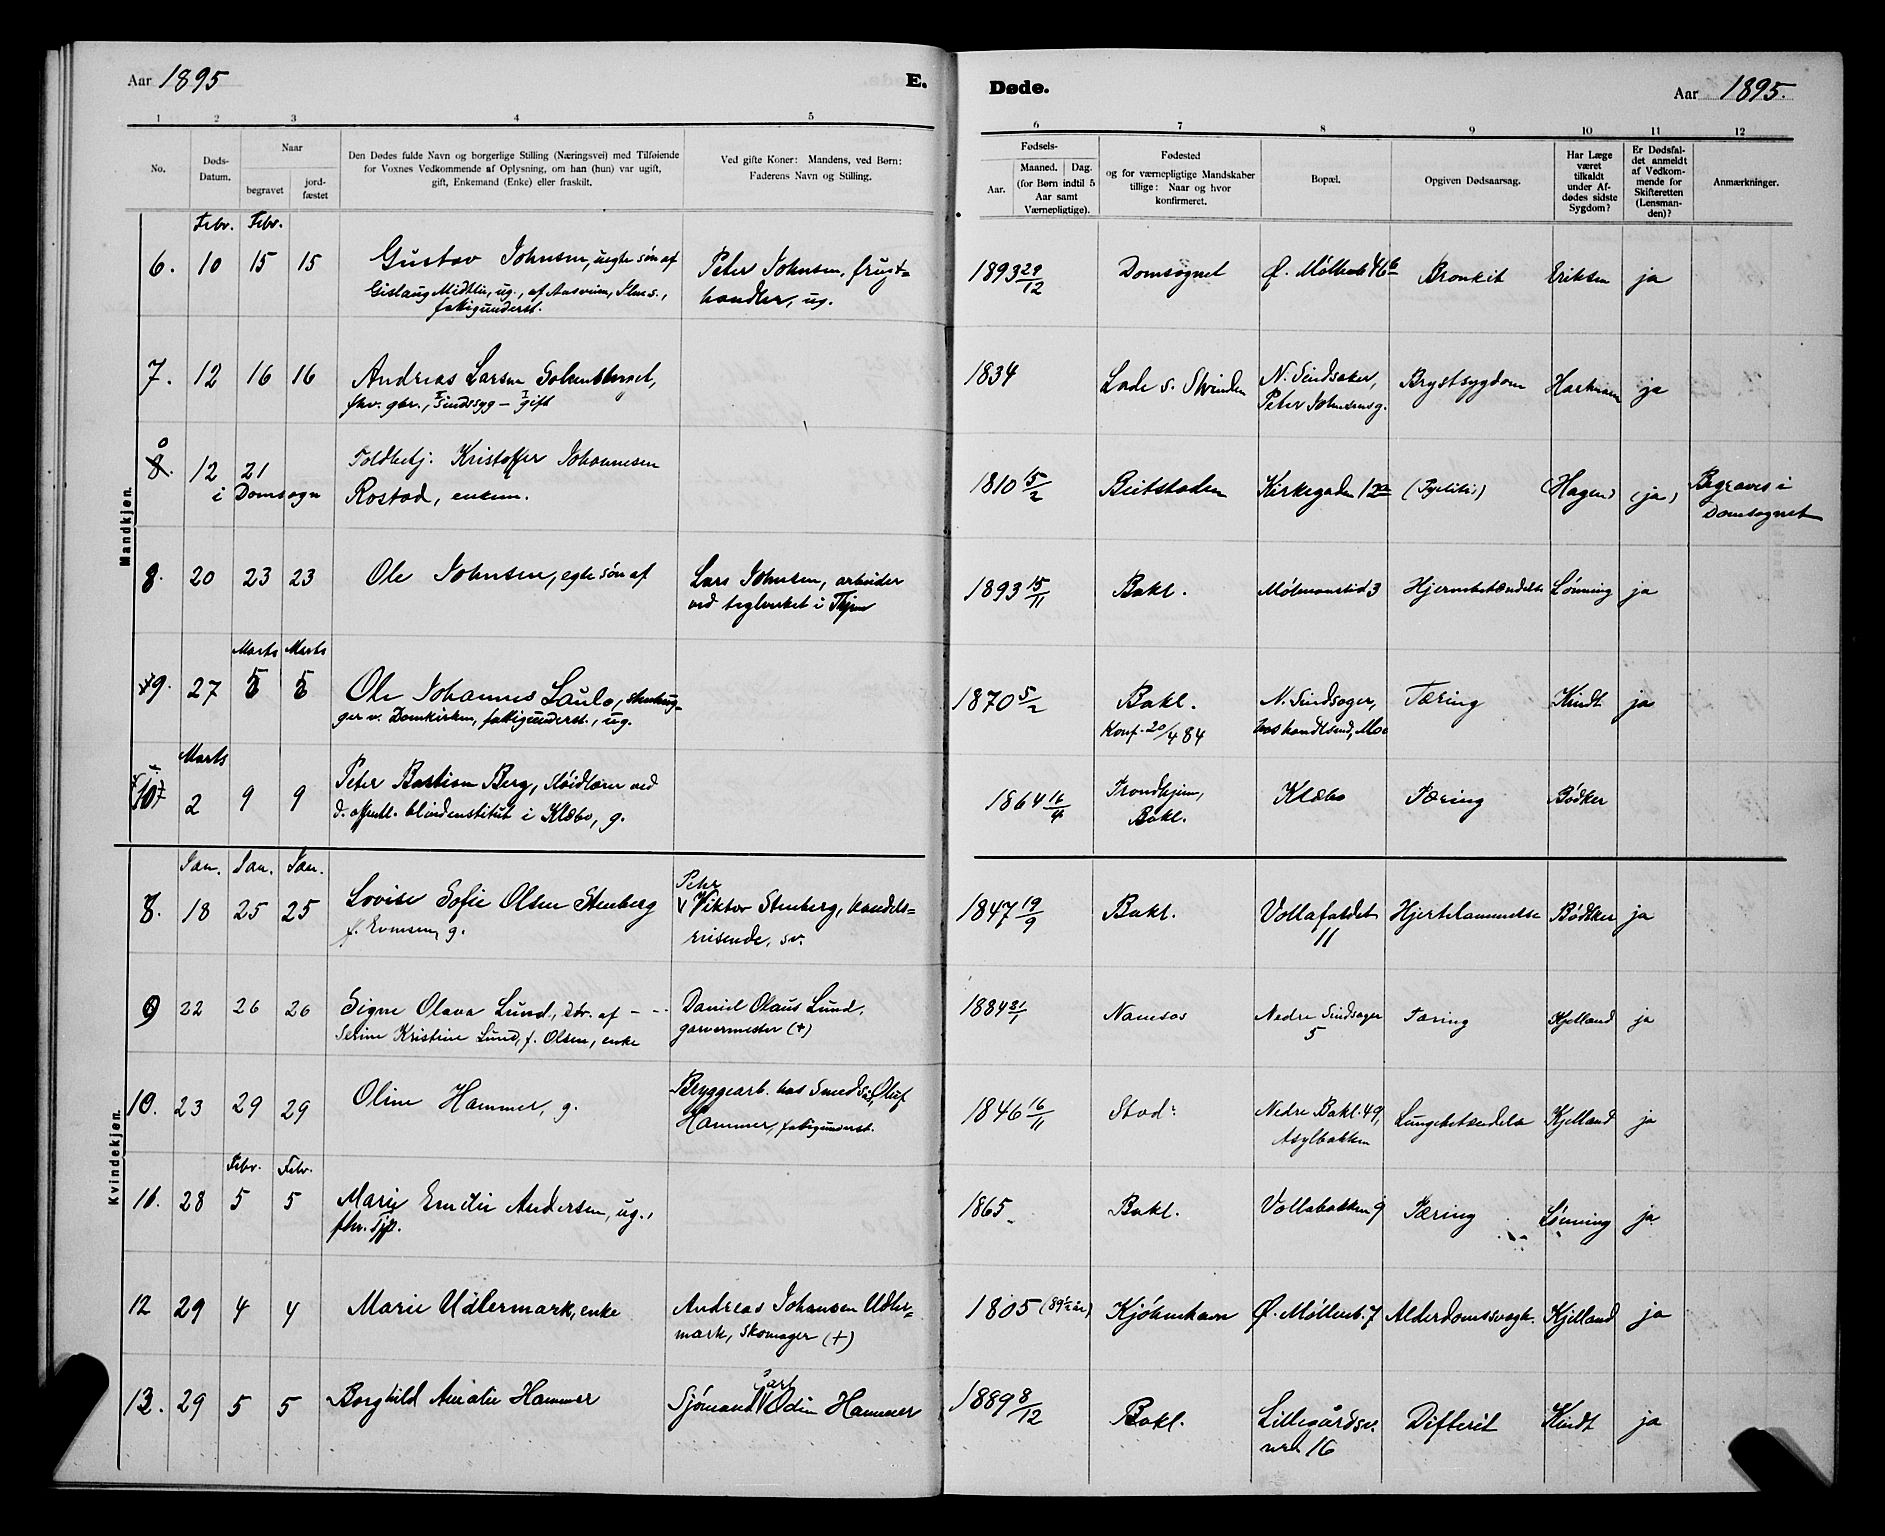 Aar 1895
E.
1 2 3 4 5
No.
Døds-Datum.
Naar
begravet
jord-fæstet
Den Dødes fulde Navn og borgerlige Stilling (Næringsvei) med Tilføiende
for Voxnes Vedkommende af Oplysning, om han (hun) var ugift,
gift, Enkemand (Enke) eller fraskilt.
Ved gifte Koner: Mandens, ved Børn:
Faderens Navn og Stilling.
Mandkjøn.
Febr. Febr.
6. 10 15 15 Gustav Johnsen, uegte søn af Peter Johnsen, frugt=
Gislaug Midtlie, ug., af fattigunderst. handler, ug.
7. 12 16 16 Andreas Larsen
fhv. gbr., Sindssyg – gift
0
8. 12 21 Toldbetj. Kristoffer Johannesen
i Domsogn Rostad, enkem.
8. 20 23 23 Ole Johnsen, egte søn af Lars Johnsen, arbeider
ved teglverket i
Marts Marts
9. 27 5 5 Ole Johannes Laulo, stenhug-
ger v. Domkirken, fattigunderst., ug.
Marts
10 2 9 9 Peter Bastian Berg, sløidlærer ved
d. offentl. blindeinstitut i Klæbo, g.
Kvindekjøn.
Jan. Jan. Jan.
8. 18 25 25 Lovise Sofie Olsen Stenberg Peter Viktor Stenberg, handels=
f. Evensen, g. reisende, sv.
9 22 26 26 Signe Olava Lund, dtr. af – – Daniel Olaus Lund,
Serine Kristine Lund, f. Olsen, enke garvermester (+)
10. 23 29 29 Oline Hammer, g. Bryggearb. hos Oluf
Hammer, fattigunderst.
Febr. Febr.
11. 28 5 5 Marie Emilie Andersen, ug.,
fhv. tjp.
12 29 4 4 Marie Udlermark, enke Andreas Johansen Udler=
mark, skomager (+)
13. 29 5 5 Borghild Amalie Hammer Sjømand Carl Odin Hammer
Døde.
Aar 1895.
6 7 8 9 10 11 12
Fødsels-
Aar.
Maaned. Dag.
(for Børn indtil 5
Aar samt
Værnepligtige).
Fødested
og for værnepligtige Mandskaber
tillige: Naar og hvor
konfirmeret.
Bopæl.
Opgiven Dødsaarsag.
Har Læge
været
tilkaldt
under Af-
dødes sidste
Sygdom?
Er Dødsfal-
det anmeldt
af Vedkom-
mende for
Skifteretten
(Lensman-
den)?
Anmærkninger.
1893 29/12 Domsognet Ø. Møllenb. 46 b Bronkit Eriksen ja
1834 Lade s. N. Sindsaker, Brystsygdom Hartmann ja
Peter Johnsensg.
1810 15/2 Beitstaden Kirkegaden 12 (Pyelitis) (Hagen) (ja) Begraves i
Domsognet
1893 15/11 Bakl. 3 Hjernebetændelse Lønning ja
1870 5/2 Bakl. N. Sindsager, Tæring Kindt ja
Konf. 20/4 84 hos handlsmd, Moe
1864 16/4 Trondhjem, Klæbo Tæring Bødker
Bakl.
1847 19/9 Bakl. Vollafaldet Hjertelammelse Bødtker ja
11
1884 31/1 Namsos Nedre Sindsager Tæring Kjelland ja
5
1846 16/11 Stod: Nedre Bakl. 49, Lungebetændelse Kjelland ja
Asylbakken
1865 Bakl. Vollabakken 9 Tæring Lønning ja
1805 (89½ år) Kjøbenhavn Ø. Møllenb. 7 Alderdomssvagh. Kjelland ja
1889 8/12 Bakl. Lillegårds- Difterit Kindt ja
16